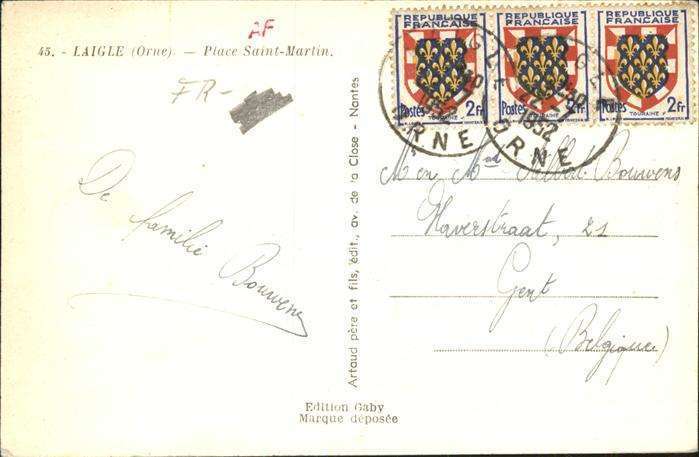 AF
45. - LAIGLE (Orne) - Place Saint-Martin.
FR-
De familie Bouwens
Artaud père et fils, édit., av. de la Close - Nantes
Edition Gaby
Marque déposée
REPUBLIQUE FRANÇAISE
Postes 2Fr
TOURAINE
REPUBLIQUE FRANÇAISE
Postes 2Fr
TOURAINE
REPUBLIQUE FRANÇAISE
Postes 2Fr
TOURAINE
1952
ORNE
1952
ORNE
M en Md Albert Bouwens
Haverstraat, 21
Gent
(Belgique)